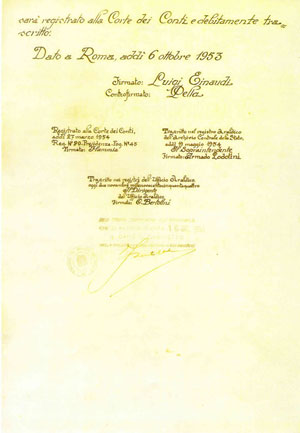 sarà registrato alla Corte dei Conti e debitamente tra=
scritto.
Dato a Roma, addì 6 ottobre 1953
Firmato: Luigi Einaudi
Controfirmato: Pella
Registrato alla Corte dei Conti,
addì 27 marzo 1954
Reg. N° 80 Presidenza - Fog. N° 45
Firmato:
Trascritto nel registro Araldico
dell'Archivio Centrale dello Stato,
addì 19 maggio 1954
Il Sopraintendente
Firmato: Armado Lodolini
Trascritto nei registri dell'Ufficio Araldico
oggi due novembre millenovecentocinquantaquattro
Il Dirigente
dell'Ufficio Araldico
Firmato: C. Bertollini